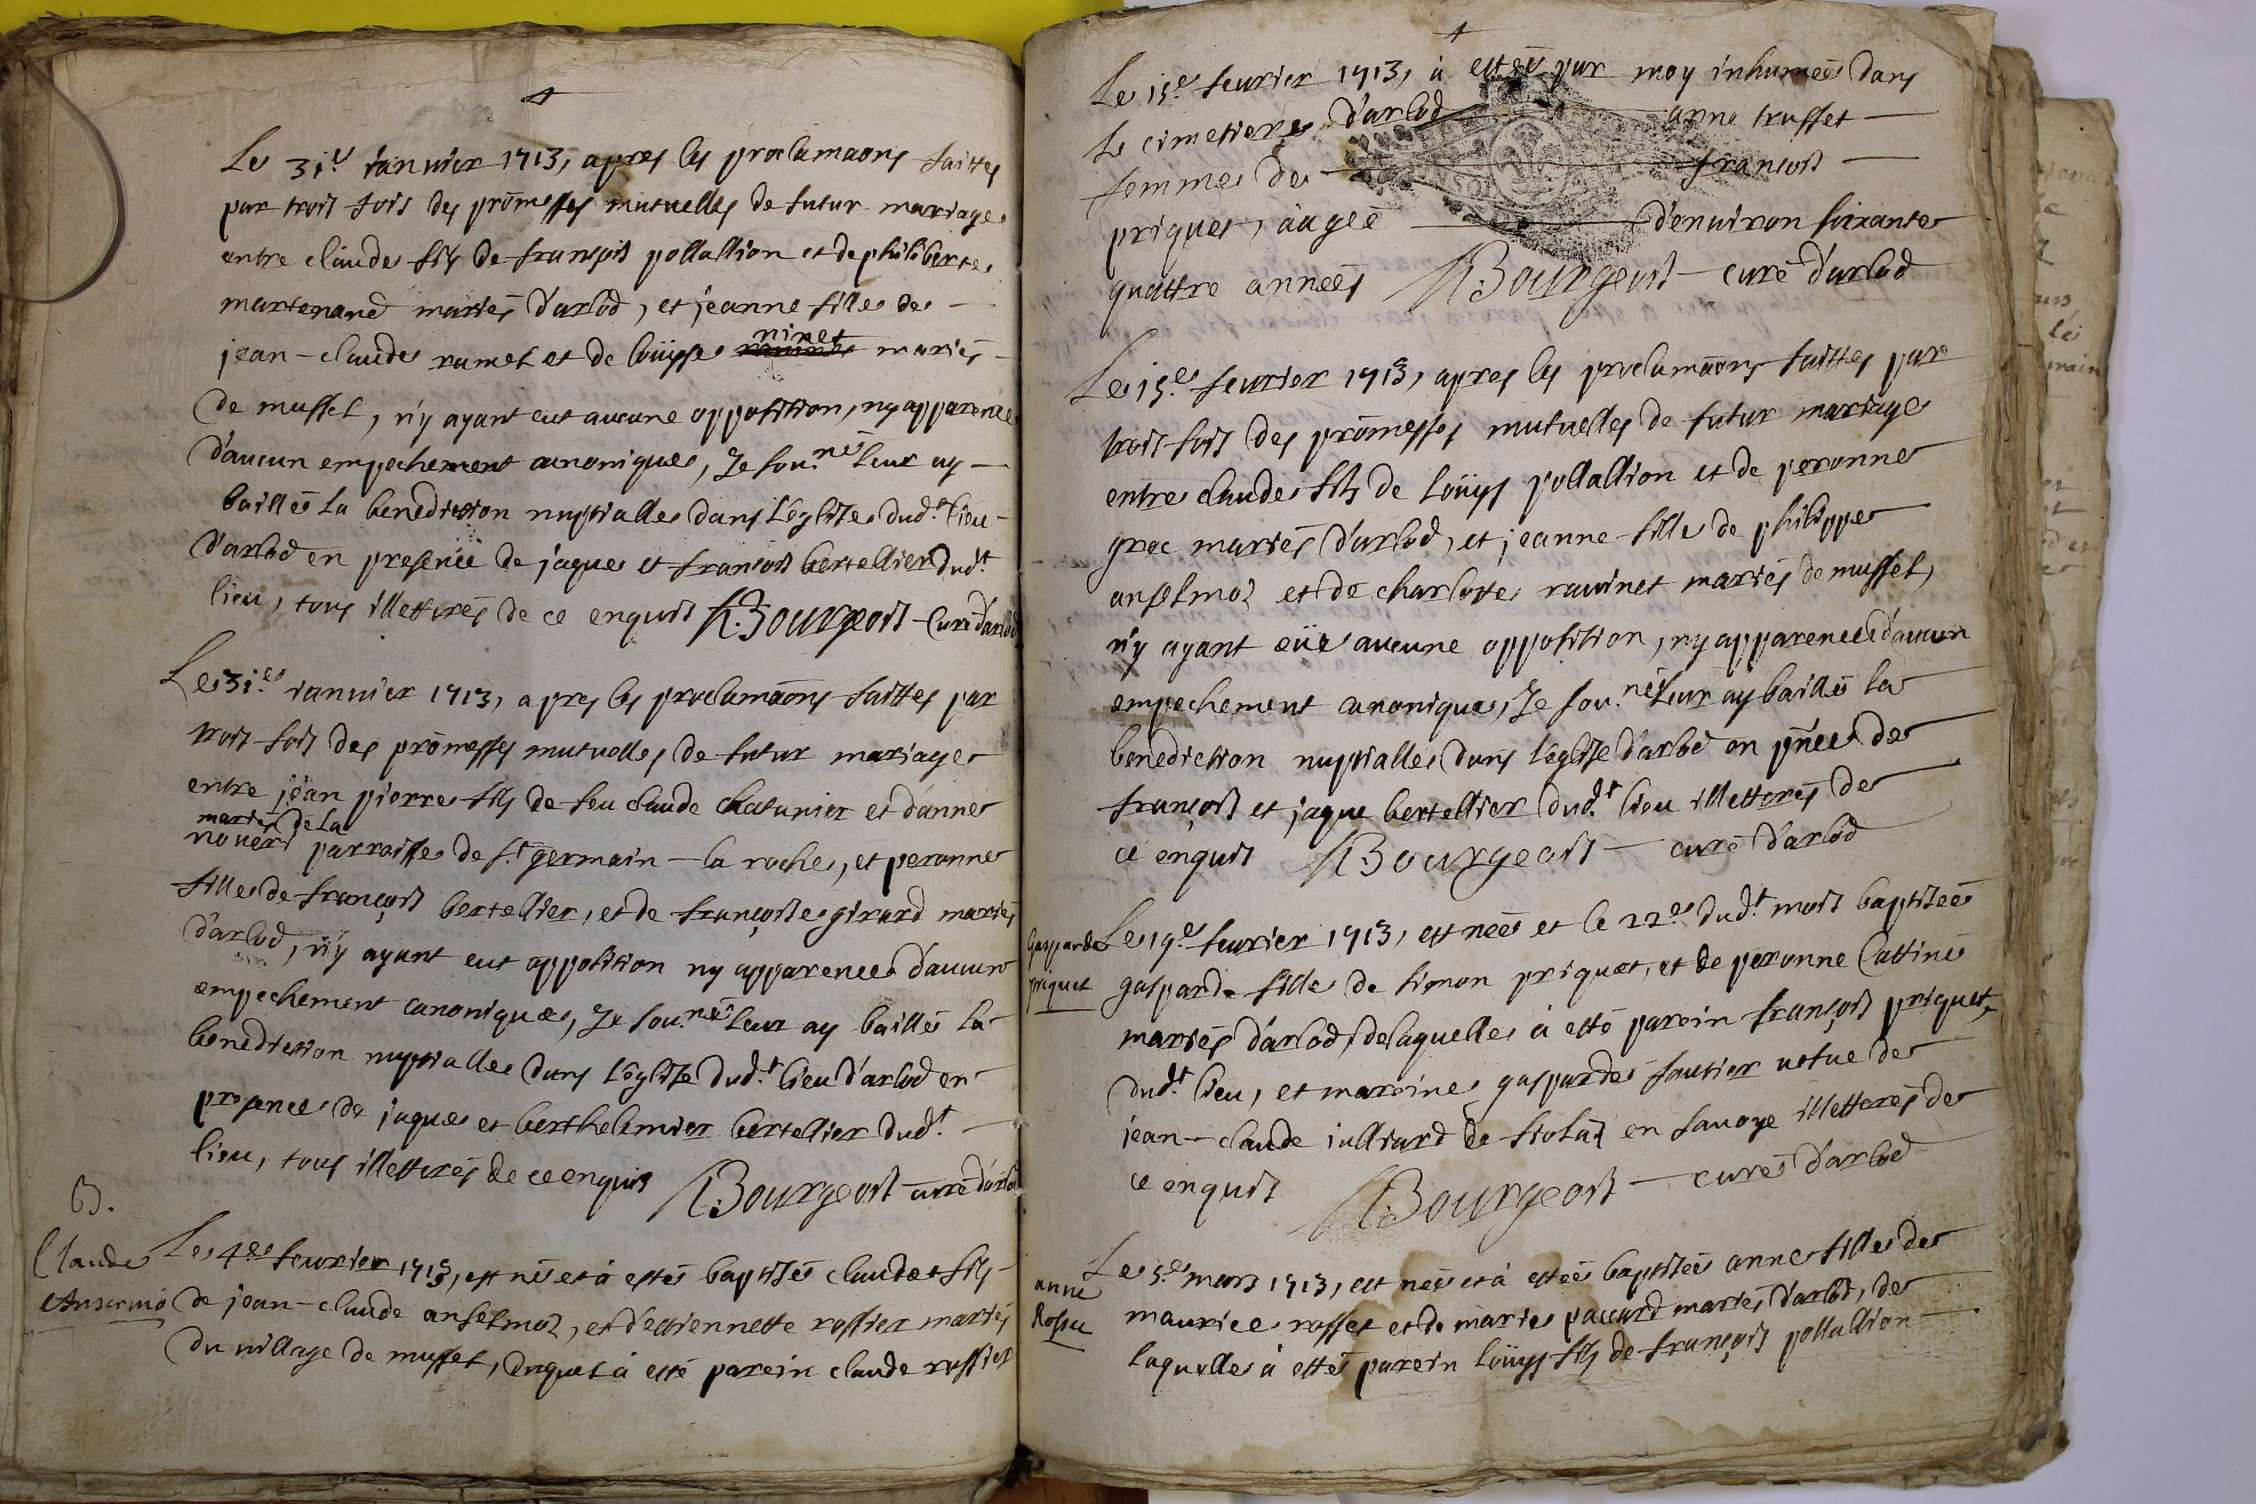 Le 31.e ianuier 1713, apres les proclamaons faittes
par trois fois des promesses mutuelles de futur mariage
entre claude fils de françois pollallion et de philiberte
martenand mariés d'arlod, et jeanne fille de
jean-claude ramel et de loüyse ninet mariés
de mussel, n'y ayant eut aucune opposition, ny apparence
d'aucun empechement canonique, Je sou.né leur ay
baillé la benediction nuptialle dans l'eglise dud.t lieu
d'arlod en presence de jaque et françois bertellier dud.t
lieu, tous illetterés de ce enquis Bourgeois curé d'arlod
Le 31.e ianuier 1713, apres les proclamaons faittes par
trois fois des promesses mutuelles de futur mariage
entre jean pierre fils de feu claude chatunier et d'anne
mariés de la
nouer parroisse de s.t germain-la roche, et peronne
fille de françois bertellier, et de françoise girard mariés
d'arlod, n'y ayant eut opposition ny apparence d'aucun
empechement canonique, Je sou.né leur ay baillé la
benediction nuptialle dans l'eglise dud.t lieu d'arlod en
presence de jaque et berthelemier bertellier dud.t
lieu, tous illetterés de ce enquis Bourgeois curé d'arlod
B.
Claude
Ansermo
Le 4.e feurier 1713, est né et à esté baptisé claude fils
de jean-claude anselmoz, et d'etiennette rossier mariés
du uillage de mussel, duquel à esté parein claude rossier
Le 15.e feurier 1713, à estée par moy inhumée dans
le cimetiere d'arlod anne trusset
femme de françois
priquet, àagée d'enuiron soixante
quattre années Bourgeois curé d'arlod
Le 15.e feurier 1713, apres les proclamaons faittes par
trois fois des promesses mutuelles de futur mariage
entre claude fils de loüys pollallion et de peronne
groc mariés d'arlod, et jeanne fille de philippe
anselmoz et de charlotte rauinet mariés de mussel,
n'y ayant eüe aucune opposition, ny apparence d'aucun
empechement canonique, Je sou.né leur ay baillé la
benediction nuptialle dans l'eglise d'arlod en pñce de
françois et jaque bertellier dud.t lieu illetterés de
ce enquis Bourgeois curé d'arlod
Gasparde
priquet
Le 19.e feurier 1713, est née et le 22.e dud.t mois baptisée
gasparde fille de simon priquet, et de peronne Cattin
mariés d'arlod, delaquelle à esté parein françois priquet
dud.t lieu, et mareine gasparde sautier uefue de
jean-claude julliard de en sauoye illetterés de
ce enquis Bourgeois curé d'arlod
anne
Rosset
Le 5.e mars 1713, est née et à estée baptisée anne fille de
maurice rosset et de marie paccard mariés d'arlod, de
laquelle à esté parein loüys fils de françois pollallion